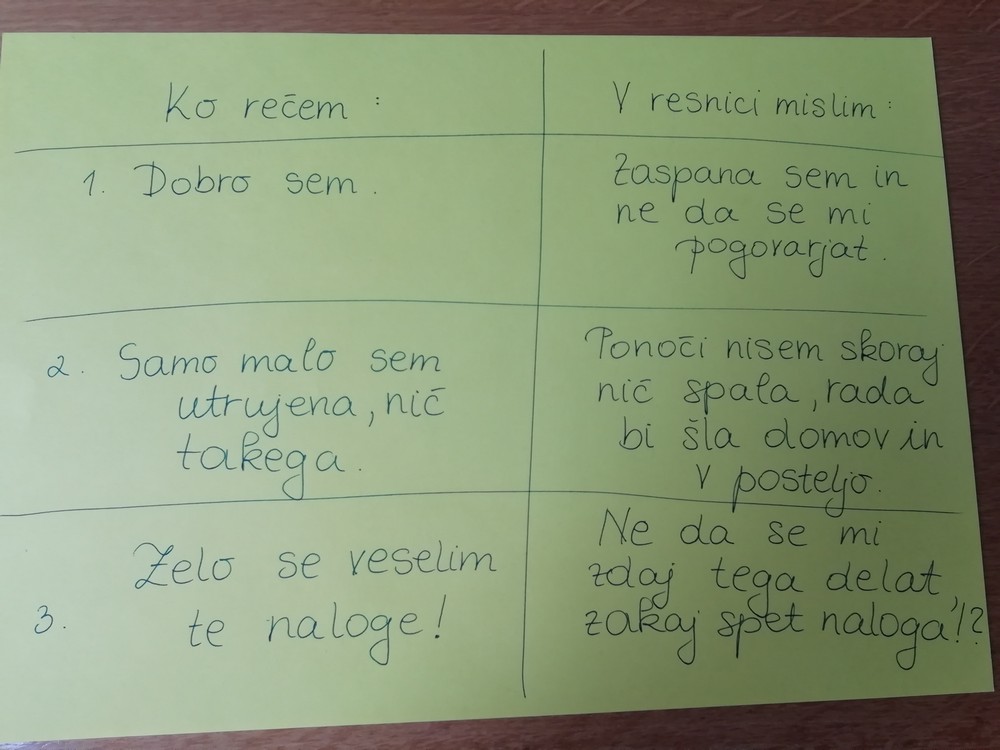 Ko rečem :
V resnici mislim :
1. Dobro sem .
Zaspana sem in
ne da se mi
pogovarjat .
2. Samo malo sem
utrujena, nič
takega .
Ponoči nisem skoraj
nič spala, rada
bi šla domov in
v posteljo.
3. Zelo se veselim
te naloge!
Ne da se mi
zdaj tega delat,
zakaj spet naloga!?